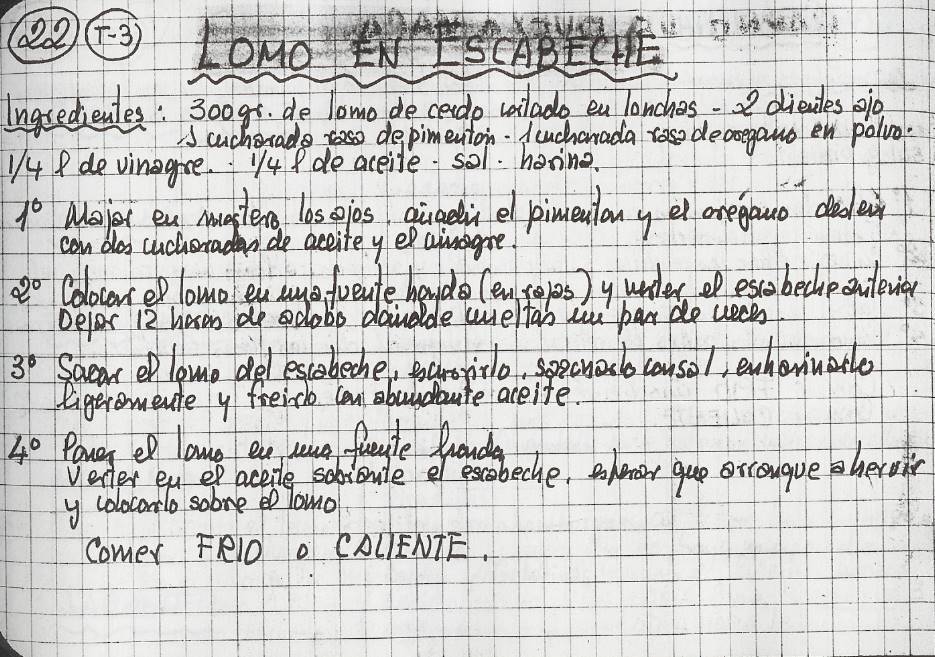 22 T-3 LOMO EN ESCABECHE
Ingredientes: 300 gr. de lomo de cerdo cortado en lonchas - 2 dientes ajo
1 cucharada rasa de pimenton - 1 cucharada rasa de oregano en polvo.
1/4 l de vinagre. - 1/4 l de aceite - sal - harina.
1º Majar en mortero los ajos, añadir el pimenton y el orégano desleir
con dos cucharadas de aceite y el vinagre.
2º Colocar el lomo en una fuente honda (en rajas) y verter el escabeche anterior
Dejar 12 horas de adobo dandole vueltas un par de veces.
3º Sacar el lomo del escabeche, escurrirlo, sazonarlo con sal, enharinarlo
ligeramente y freirlo con abundante aceite.
4º Poner el lomo en una fuente honda
Verter en el aceite sobrante el escabeche, esperar que arranque a hervir
y colocarlo sobre el lomo
Comer FRIO o CALIENTE.